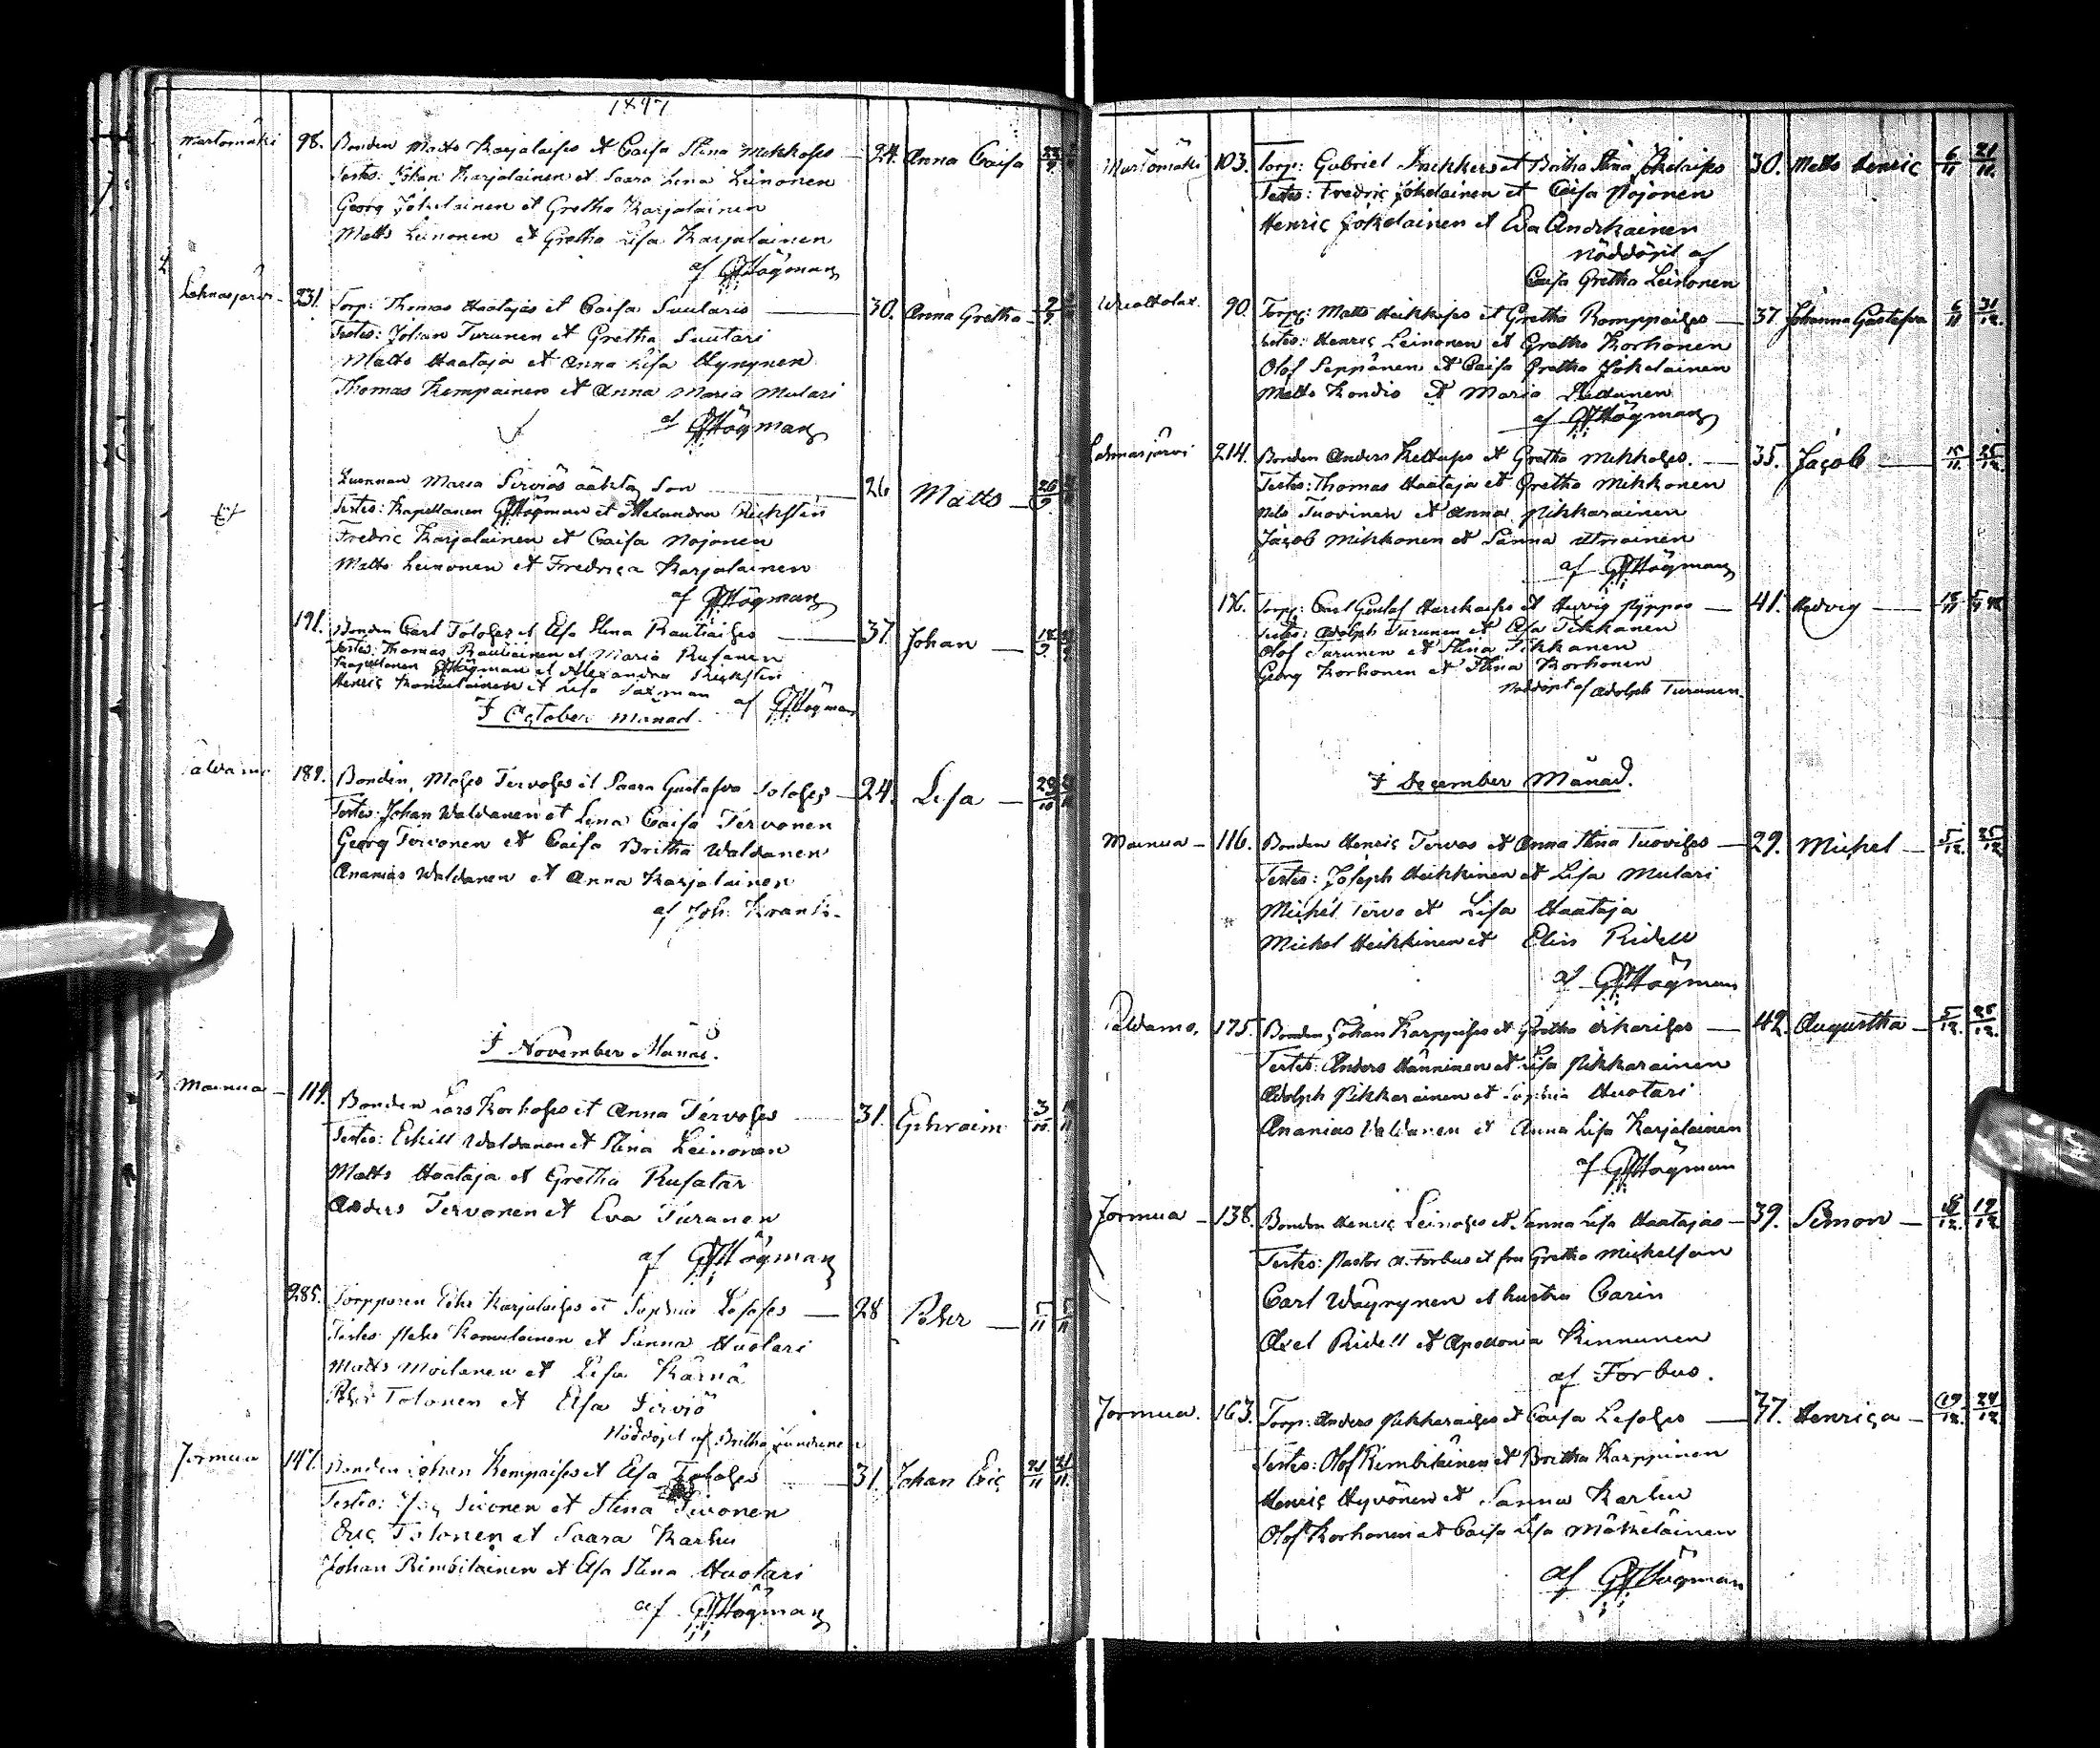 1847
Murtomäki 98. Bonden Matts Karjalaises et Caisa Stina Mikkoses 24. Anna Caisa
Testes: Johan Karjalainen et Saara Lena Leinonen
Georg Jokelainen et Gretha Karjalainen
Matts Leinonen et Gretha Lisa Karjalainen
af Högman
Lehmasjärvi 231. Torp: Thomas Haatajas et Caisa Suutaris 30. Anna Gretha
Testes: Johan Turunen et Gretha Suutari
Matts Haataja et Anna Lisa Hynynen
Thomas Kempainen et Anna Maria Mulari
af Högman
Maria Sirviös oäkta Son 26 Matts 26/9
Testes: Kapellanen Högman et Alexandra
Fredric Karjalainen et Caisa Nojonen
Matts Leinonen et Fredrica Karjalainen
af Högman
191. Bonden Carl Toloses et Elsa Stina Rautiaises 37. Johan
Testes: Thomas Rautiainen et Maria Rusanen
Kapellanen Högman et Alexandra
Henric Komulainen et Lisa Saxman af Högman
I October Månad.
189. Bonden Moses Tervoses et Saara Gustafva Toloses 24. Lisa 29/10
Testes: Johan Waldanen et Lena Caisa Tervonen
Georg Tervonen et Caisa Britha Waldanen
Ananias Waldanen et Anna Karjalainen
af Joh:
I November Månad.
Mainua 114. Bonden Lars Korhoses et Anna Tervoses 31. Ephraim 3/11
Testes: Eskill Waldanen et Stina Leinonen
Matts Haataja et Gretha Rusatar
Anders Tervonen et Eva Turunen
af Högman
285. Torpparen Karjalaises et Sophia 28 Peter 5/11 5/11
Testes: Petter Komulainen et Sanna Huotari
Matts Moilanen et Lisa Kärnä
Peter Tolonen et Elsa Sirviö
Nöddöpt af Britha
Jormua 147. Bonden Johan Kempaises et Elsa Toloses 31 Johan Eric 21/11 21/11
Testes: Sivonen et Stina Sivonen
Eric Tolonen et Saara Karhu
Johan Rimbiläinen et Elsa Stina Huotari
af Högman
Murtomäki 103. Torp: Gabriel et Britha Stina Jokelaises 30. Matts Henric 6/11 21/11
Testes: Fredric Jokelainen et Caisa Nojonen
Henric Jokelainen et Eva
Nöddöpt af
Caisa Gretha Leinonen
90. Torp: Matts Heikkises et Gretha Romppaises 37 Johanna Gustafva 6/11 31/12
Testes: Henric Leinonen et Gretha Korhonen
Olof Seppänen et Caisa Gretha Jokelainen
Matts Kondio et Maria
af Högman
Lehmasjärvi 214. Bonden Anders et Gretha Mikkoses 35. Jacob 15/11 25/12
Testes: Thomas Haataja et Gretha Mikkonen
Nils Tuovinen et Anna Pikkarainen
Jacob Mikkonen et Sanna
af Högman
176. Torp: Carl Gustaf et Hedvig 41. Hedvig
Testes: Adolph Turunen et Elsa Tikkanen
Olof Turunen et Stina Tikkanen
Georg Korhonen et Stina Korhonen
Nöddöpt af Adolph Turunen
I December Månad.
Mainua 116. Bonden Henric Tervos et Anna Stina Tuovises 29. Michel 5/12 25/12
Testes: Joseph Heikkinen et Lisa Mulari
Michel Tervo et Lisa Haataja
Michel Heikkinen et Elis Ridell
af Högman
Paldamo, 175. Bonden Johan Karppises et Gretha 42. Augustha 5/12 25/12
Testes: Anders Hänninen et Lisa Pikkarainen
Adolph Pikkarainen et Sophia Huotari
Ananias Waldanen et Anna Lisa Karjalainen
af Högman
Jormua 138. Bonden Henric Leinoses et Sanna Lisa Haatajas 39. Simon 18/12 19/12
Testes: Pastor A. Forbus et fru Gretha Michelson
Carl Wäyrynen et hustru Carin
Axel Ridell et Apollonia Kinnunen
af Forbus.
Jormua. 163. Torp: Anders Pikkaraises et Caisa 37. Henrica 19/12 24/12
Testes: Olof Rimbiläinen et Britha Karppinen
Henric Hyvönen et Sanna Karhu
Olof Korhonen et Caisa Lisa Mätteläinen
af Högman